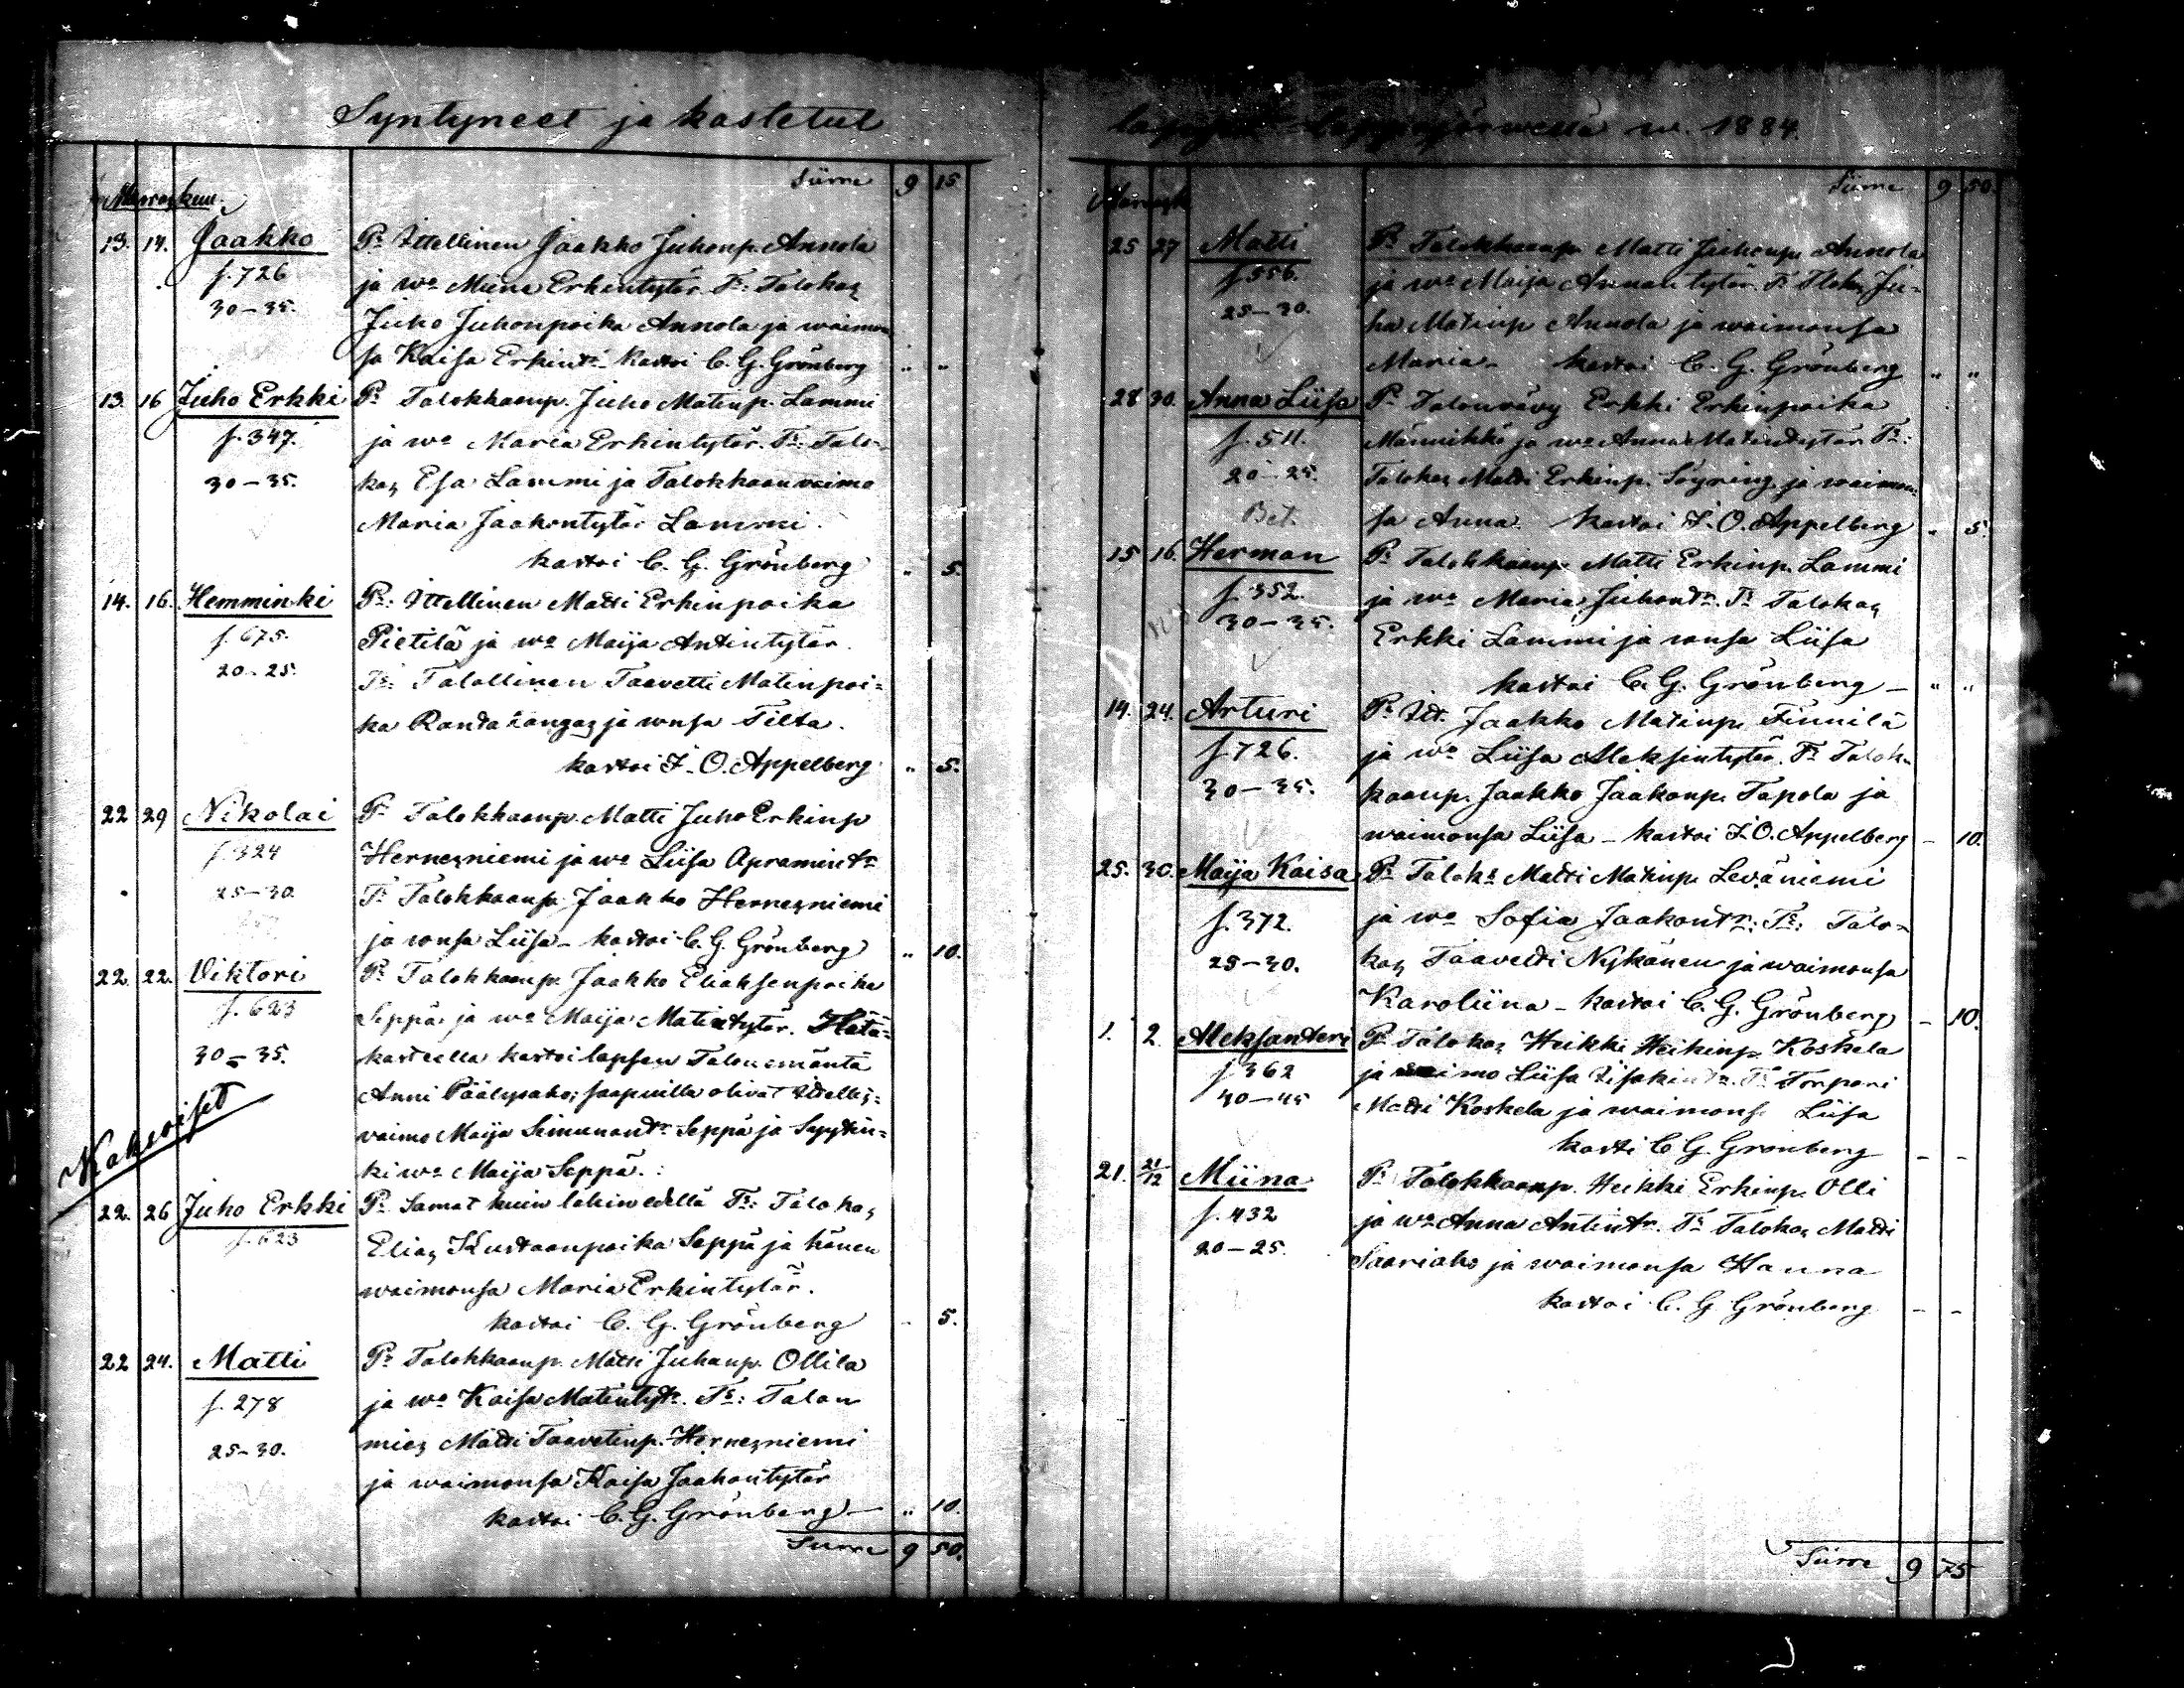 Syntyneet ja kastetut
Marraskuu. Siirre 9 15
13. 14. Jaakko Pr Ittellinen Jaakko Juhonp. Annola
f. 726 ja wo Miina Erkintytär. Tr: Talokas
30-35. Juho Juhonpoika Annola ja waimon
sa Kaisa Erkintr. kastoi C. G. Grönberg " "
13. 16 Juho Erkki Pr Talokkaanp. Juho Matinp. Lammi
f. 347. ja wo Maria Erkintytär. Tr: Talo-
30-35. kas Esa Lammi ja Talokkaan waimo
Maria Jaakontytär Lammi.
kastoi C. G. Grönberg " 5.
14. 16. Hemminki Pr: Ittellinen Matti Erkinpoika
f. 675. Pietilä ja wo Maija Antintytär.
20-25. Tr: Talollinen Taavetti Matinpoi=
ka Rantakangas ja wnsa Tilta.
kastoi F. O. Appelberg " 5.
22 29 Nikolai Pr Talokkaanp. Matti Juho Erkinp
f. 324 Hernesniemi ja wo Liisa Apramintr
25-30. Tr Talokkaanp. Jaakko Hernesniemi
ja wnsa Liisa - kastoi C. G. Grönberg " 10.
22. 22. Viktori Pr Talokkaanp. Jaakko Eliaksenpoika
f. 623 Seppä ja wo Maija Matintytär. Hätä=
30-35. kasteella kastoi lapsen Talonemäntä
Anni Päälysaho; saapuilla olivat Ittellis=
Kaksoiset
waimo Maija Simunantr Seppä ja Syytin=
ki wo Maija Seppä.
22. 26 Juho Erkki Pr Samat kuin lähin edellä Tr: Talokas
f. 623 Elias Kustaanpoika Seppä ja hänen
waimonsa Maria Erkintytär.
kastoi C. G. Grönberg - 5.
22 24. Matti Pr Talokkaanp. Matti Juhanp. Ollila
f. 278 ja wo Kaisa Matintytr. Tr: Talon
25-30. mies Matti Taavetinp. Hernesniemi
ja waimonsa Kaisa Jaakontytär
kastoi C. G. Grönberg - " 10.
Siirre 9 50.
lapset Lappajärwellä w. 1884.
Marrask Siirre 9 50.
25 27 Matti Pr Talokkaanp. Matti Juhonp. Annola
f. 556. ja wo Maija Annantytär. Tr Tlokas Ju-
25-30. ha Matinp Annola ja waimonsa
Maria - kastoi C. G. Grönberg " "
28 30. Anna Liisa Pr Talonvävy Erkki Erkinpoika
f. 511. Männikkö ja wo Anna Matintytär Tr:
20-25. Talokas Matti Erkinp. Söyring ja waimon
Bet. sa Anna. kastoi F. O. Appelberg " 5.
15 16. Herman Pr Talokkaanp. Matti Erkinp. Lammi
f. 352. ja wo Maria Juhontr. Tr Talokas
30-35. Erkki Lammi ja wnsa Liisa
kastoi C. G. Grönberg - " "
14. 24. Arturi Pr Itt. Jaakko Matinp. Finnilä
f. 726. ja wo Liisa Aleksintytär. Tr Talok-
30-35. kaanp. Jaakko Jaakonp. Tapola ja
waimonsa Liisa - kastoi F. O. Appelberg - 10.
25. 30. Maija Kaisa Pr Taloks Matti Matinp. Leväniemi
f. 372. ja wo Sofia Jaakontr: Tr: Talo-
25-30. kas Taavetti Nykänen ja waimonsa
Karoliina - kastoi C. G. Grönberg - 10.
1. 2 Aleksanteri Pr Talokas Heikki Heikinp. Koskela
f. 362 ja waimo Liisa Iisakintr. Tr Torpari
40-45 Matti Koskela ja waimons. Liisa
kasti C G. Gronberg - -
21. 21/12 Miina Pr Talokkaanp. Heikki Erkinp. Olli
f. 432 ja wo Anna Antintr. Tr Talokas Matti
20-25. Saariaho ja waimonsa Hanna
kastoi C. G Grönberg - -
Siirre 9 75